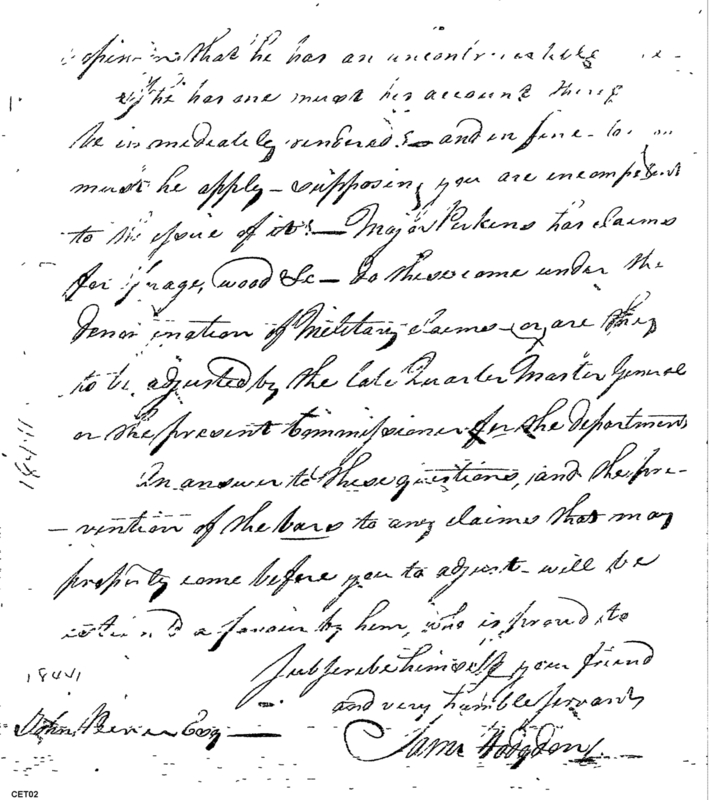 opinion that he has an uncontrovertible
if he has one must his account thereof
be immediately rendered? — and in fine — to
must he apply — supposing you are incompetent
to the issue of it? — Major Perkins has claims
for forage, wood &c — do these come under the
denomination of Military claims — or are they
to be adjusted by the late Quarter Master General
or the present Commissioner for the department
In answer to these questions, and the pre-
-vention of the bars to any claims that may
properly come before you to adjust — will be
a favour by him, who is proud to
subscribe himself, your friend
and very humble servant
John Pierce Esq —
Saml Hodgdon
18441
18441
CET02